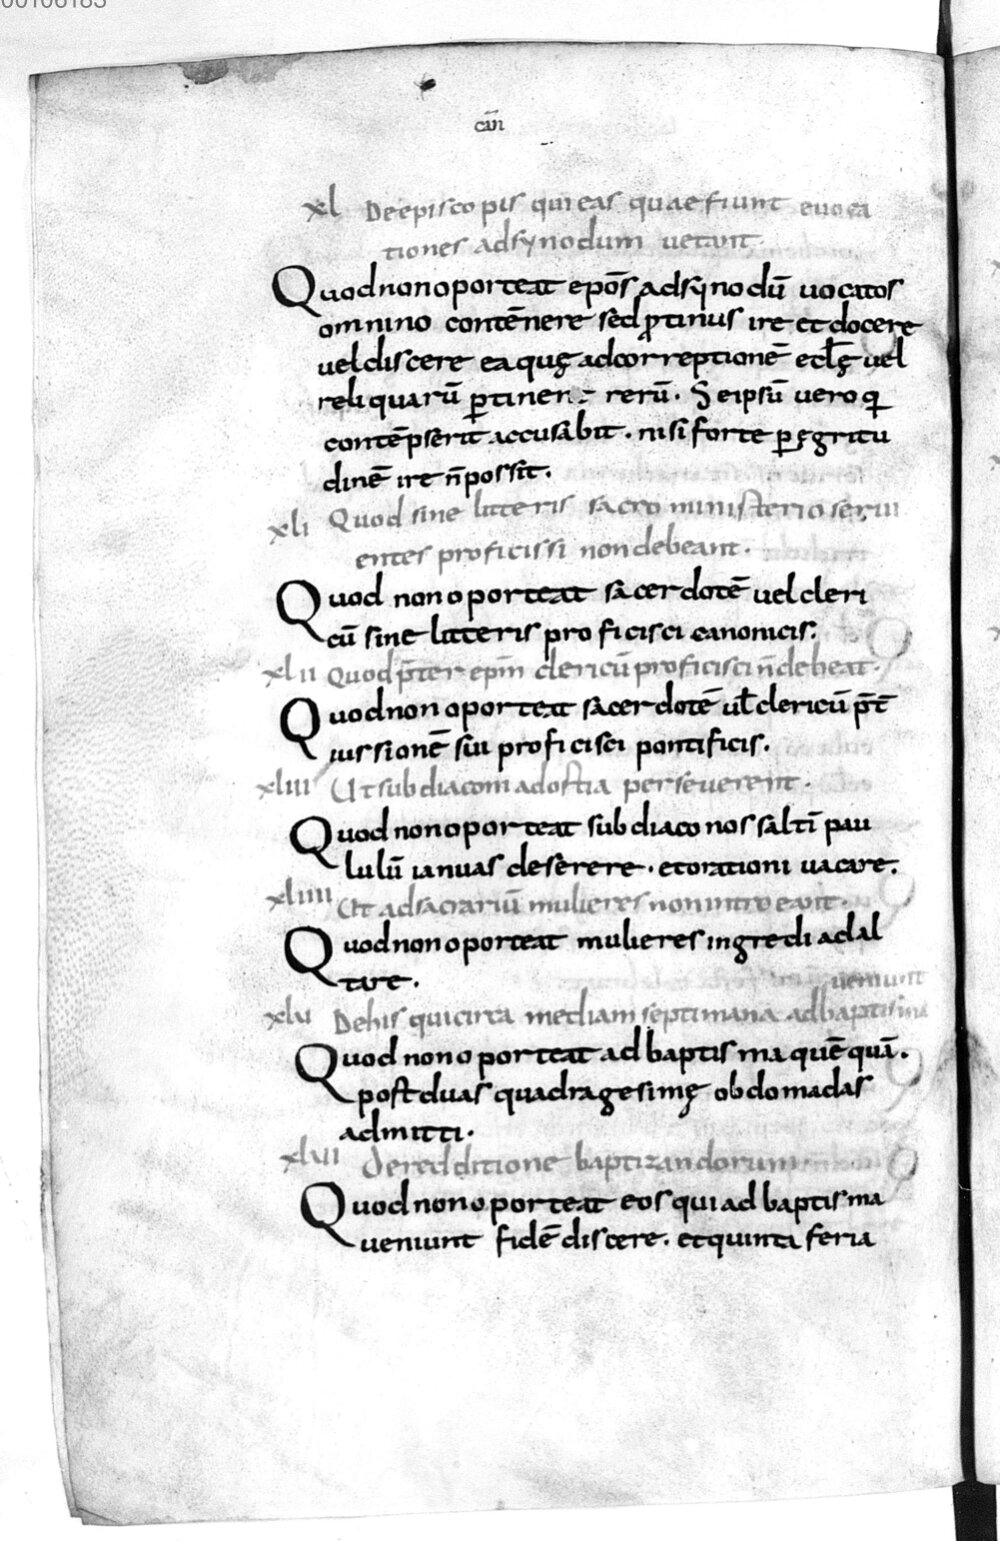 00106185
cān
xl De episcopis qui eas quae fiunt euoca
tiones ad synodum uetant.
Quod non oporteat epōs ad synodū uocatos
omnino contēnere sed ꝓtinus ire et docere
uel discere ea quę ad correptionē eclę uel
reliquarū ꝑtinent rerū. Seipsū uero qi
contēpserit accusabit. nisi forte ꝑ ęgritu
dinē ire n̄ possit.
xli Quod sine litteris sacro ministerio serui
entes proficissi non debeant.
Quod non oporteat sacerdotē uel cleri
cū sine litteris proficisci canonicis.
xlii Quod p̄ter epm̄ clericū proficisci n̄ debeat.
Quod non oporteat sacerdotē ul̄ clericū p̄t̄
iussionē sui proficisci pontificis.
xliii Ut subdiaconi ad ostia perseuerent.
Quod non oporteat subdiaconos saltī pau
lulū ianuas deserere. et orationi uacare.
xliiii Ut ad sacrariū mulieres non introeant.
Quod non oporteat mulieres ingredi ad al
tare.
ueniunt
xlv De his qui circa mediam septimana ad baptisma
Quod non oporteat ad baptisma quē quā.
post duas quadragesimę obdomadas
admitti.
xlvi de redditione baptizandorum
Quod non oporteat eos qui ad baptisma
ueniunt fidē discere. et quinta feria